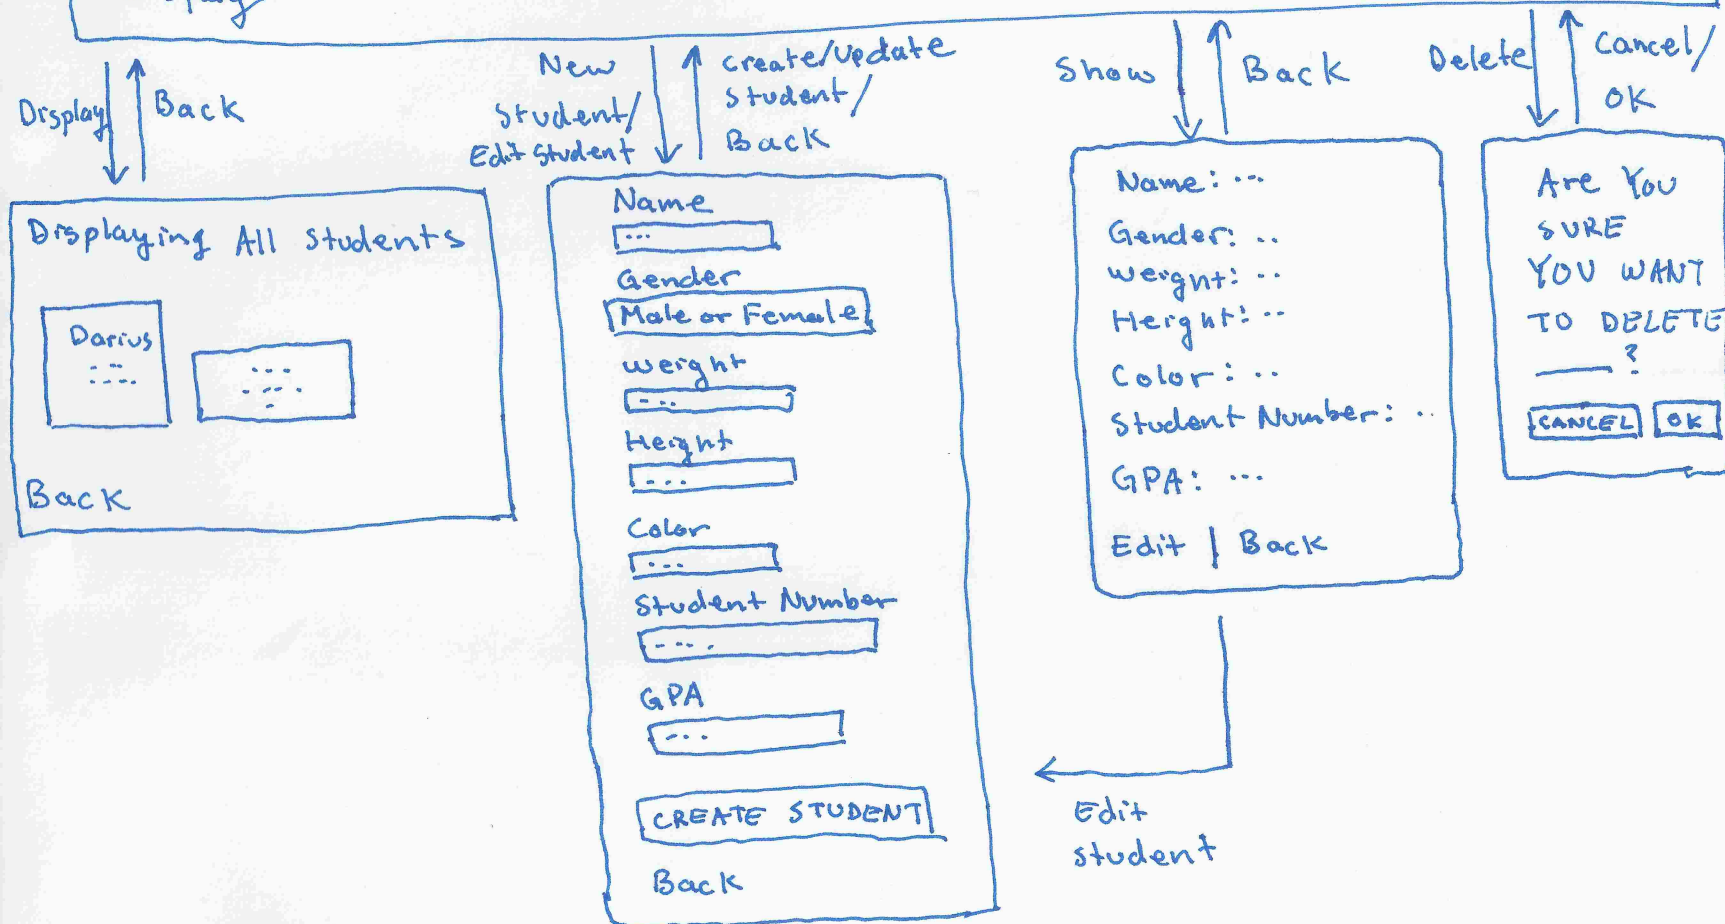 Display
Back
New
Student/
Edit Student
Create/Update
Student/
Back
Show
Back
Delete
Cancel/
OK
Displaying All Students
Darius
Back
Name
Gender
Male or Female
Weight
Height
Color
Student Number
GPA
CREATE STUDENT
Back
Name: ...
Gender: ..
Weight: ..
Height: ..
Color: ..
Student Number: ..
GPA: ...
Edit | Back
Edit
Student
Are You
SURE
YOU WANT
TO DELETE
____ ?
CANCEL OK